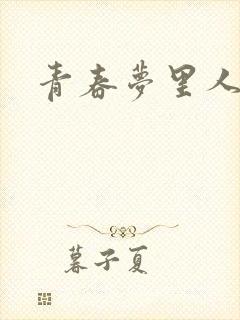 青春夢里人
暮子夏